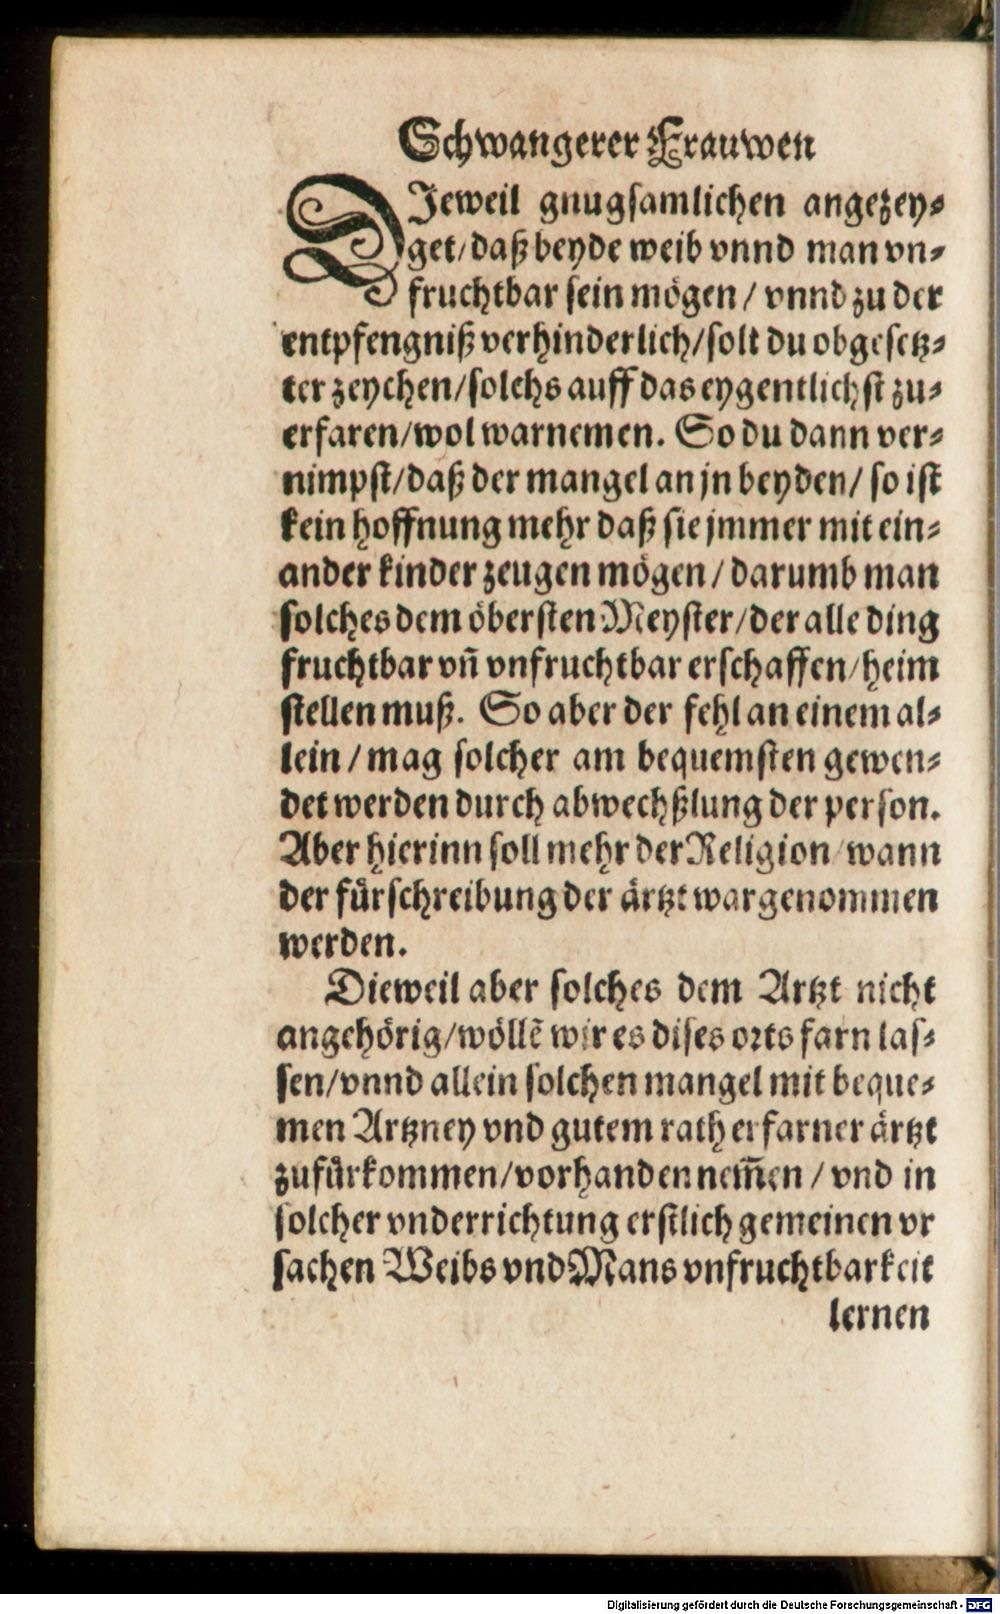 Schwangerer Frauwen
DJeweil gnugsamlichen angezey⸗
get/ daß beyde weib vnnd man vn⸗
fruchtbar sein mögen / vnnd zu der
entpfengniß verhinderlich/ solt du obgesetz⸗
ter zeychen/ solchs auff das eygentlichst zu⸗
erfaren/ wol warnemen. So du dann ver⸗
nimpst/ daß der mangel an jn beyden/ so ist
kein hoffnung mehr daß sie jmmer mit ein⸗
ander kinder zeugen mögen / darumb man
solches dem öbersten Meyster/ der alle ding
fruchtbar vñ vnfruchtbar erschaffen/ heim
stellen muß. So aber der fehl an einem al⸗
lein / mag solcher am bequemsten gewen⸗
det werden durch abwechßlung der person.
Aber hierinn soll mehr der Religion/ wann
der fürschreibung der ärtzt wargenommen
werden.
Dieweil aber solches dem Artzt nicht
angehörig/ wöllẽ wir es dises orts farn las⸗
sen/ vnnd allein solchen mangel mit beque⸗
men Artzney vnd gutem rath erfarner ärtzt
zufürkommen/ vorhanden nem̃en / vnd in
solcher vnderrichtung erstlich gemeinen vr
sachen Weibs vnd Mans vnfruchtbarkeit
lernen
Digitalisierung gefördert durch die Deutsche Forschungsgemeinschaft - DFG